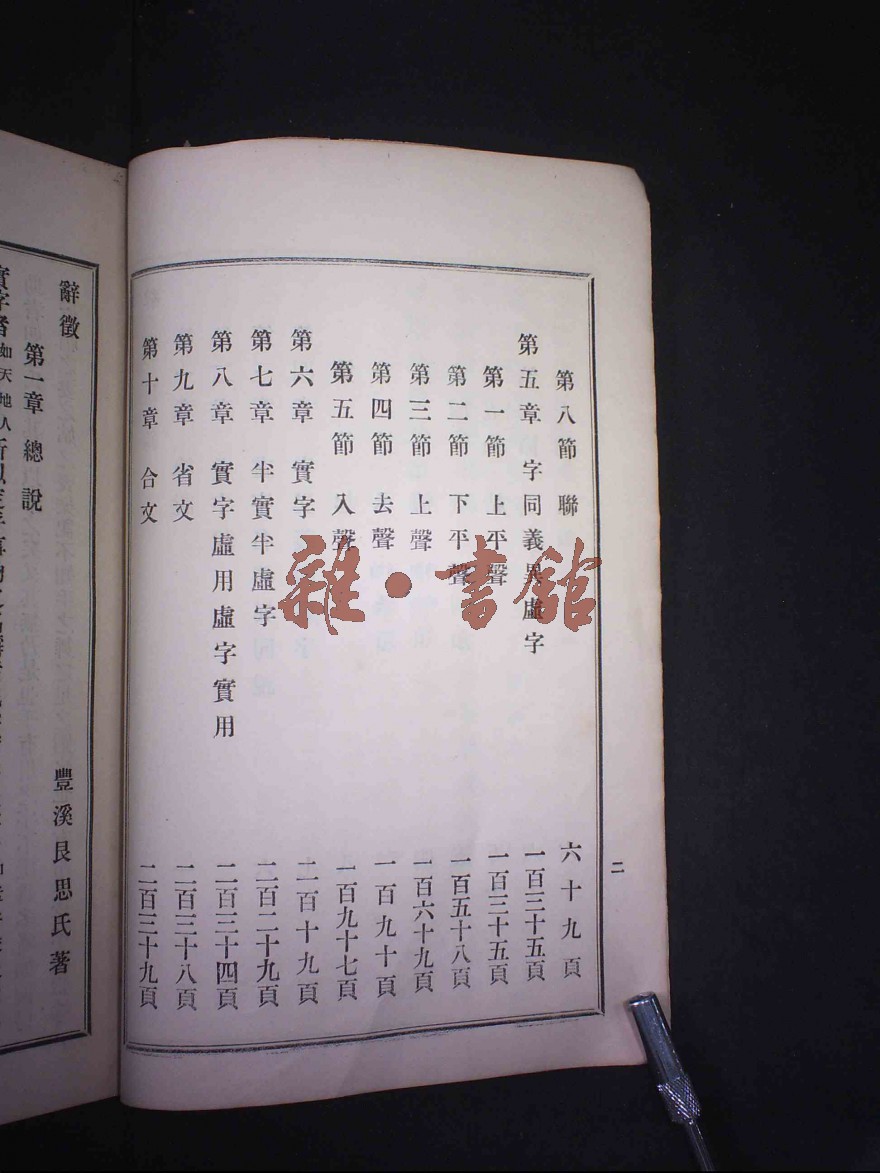 二
第八節 聯 六十九頁
第五章 字同義異虛字 一百三十五頁
第一節 上平聲 一百三十五頁
第二節 下平聲 一百五十八頁
第三節 上聲 一百六十九頁
第四節 去聲 一百九十頁
第五節 入聲 一百九十七頁
第六章 實字 二百十九頁
第七章 半實半虛字 二百二十九頁
第八章 實字虛用虛字實用 二百三十四頁
第九章 省文 二百三十八頁
第十章 合文 二百三十九頁
雜·書館
辭徵 豐溪艮思氏著
第一章 總說
實字者如天地人